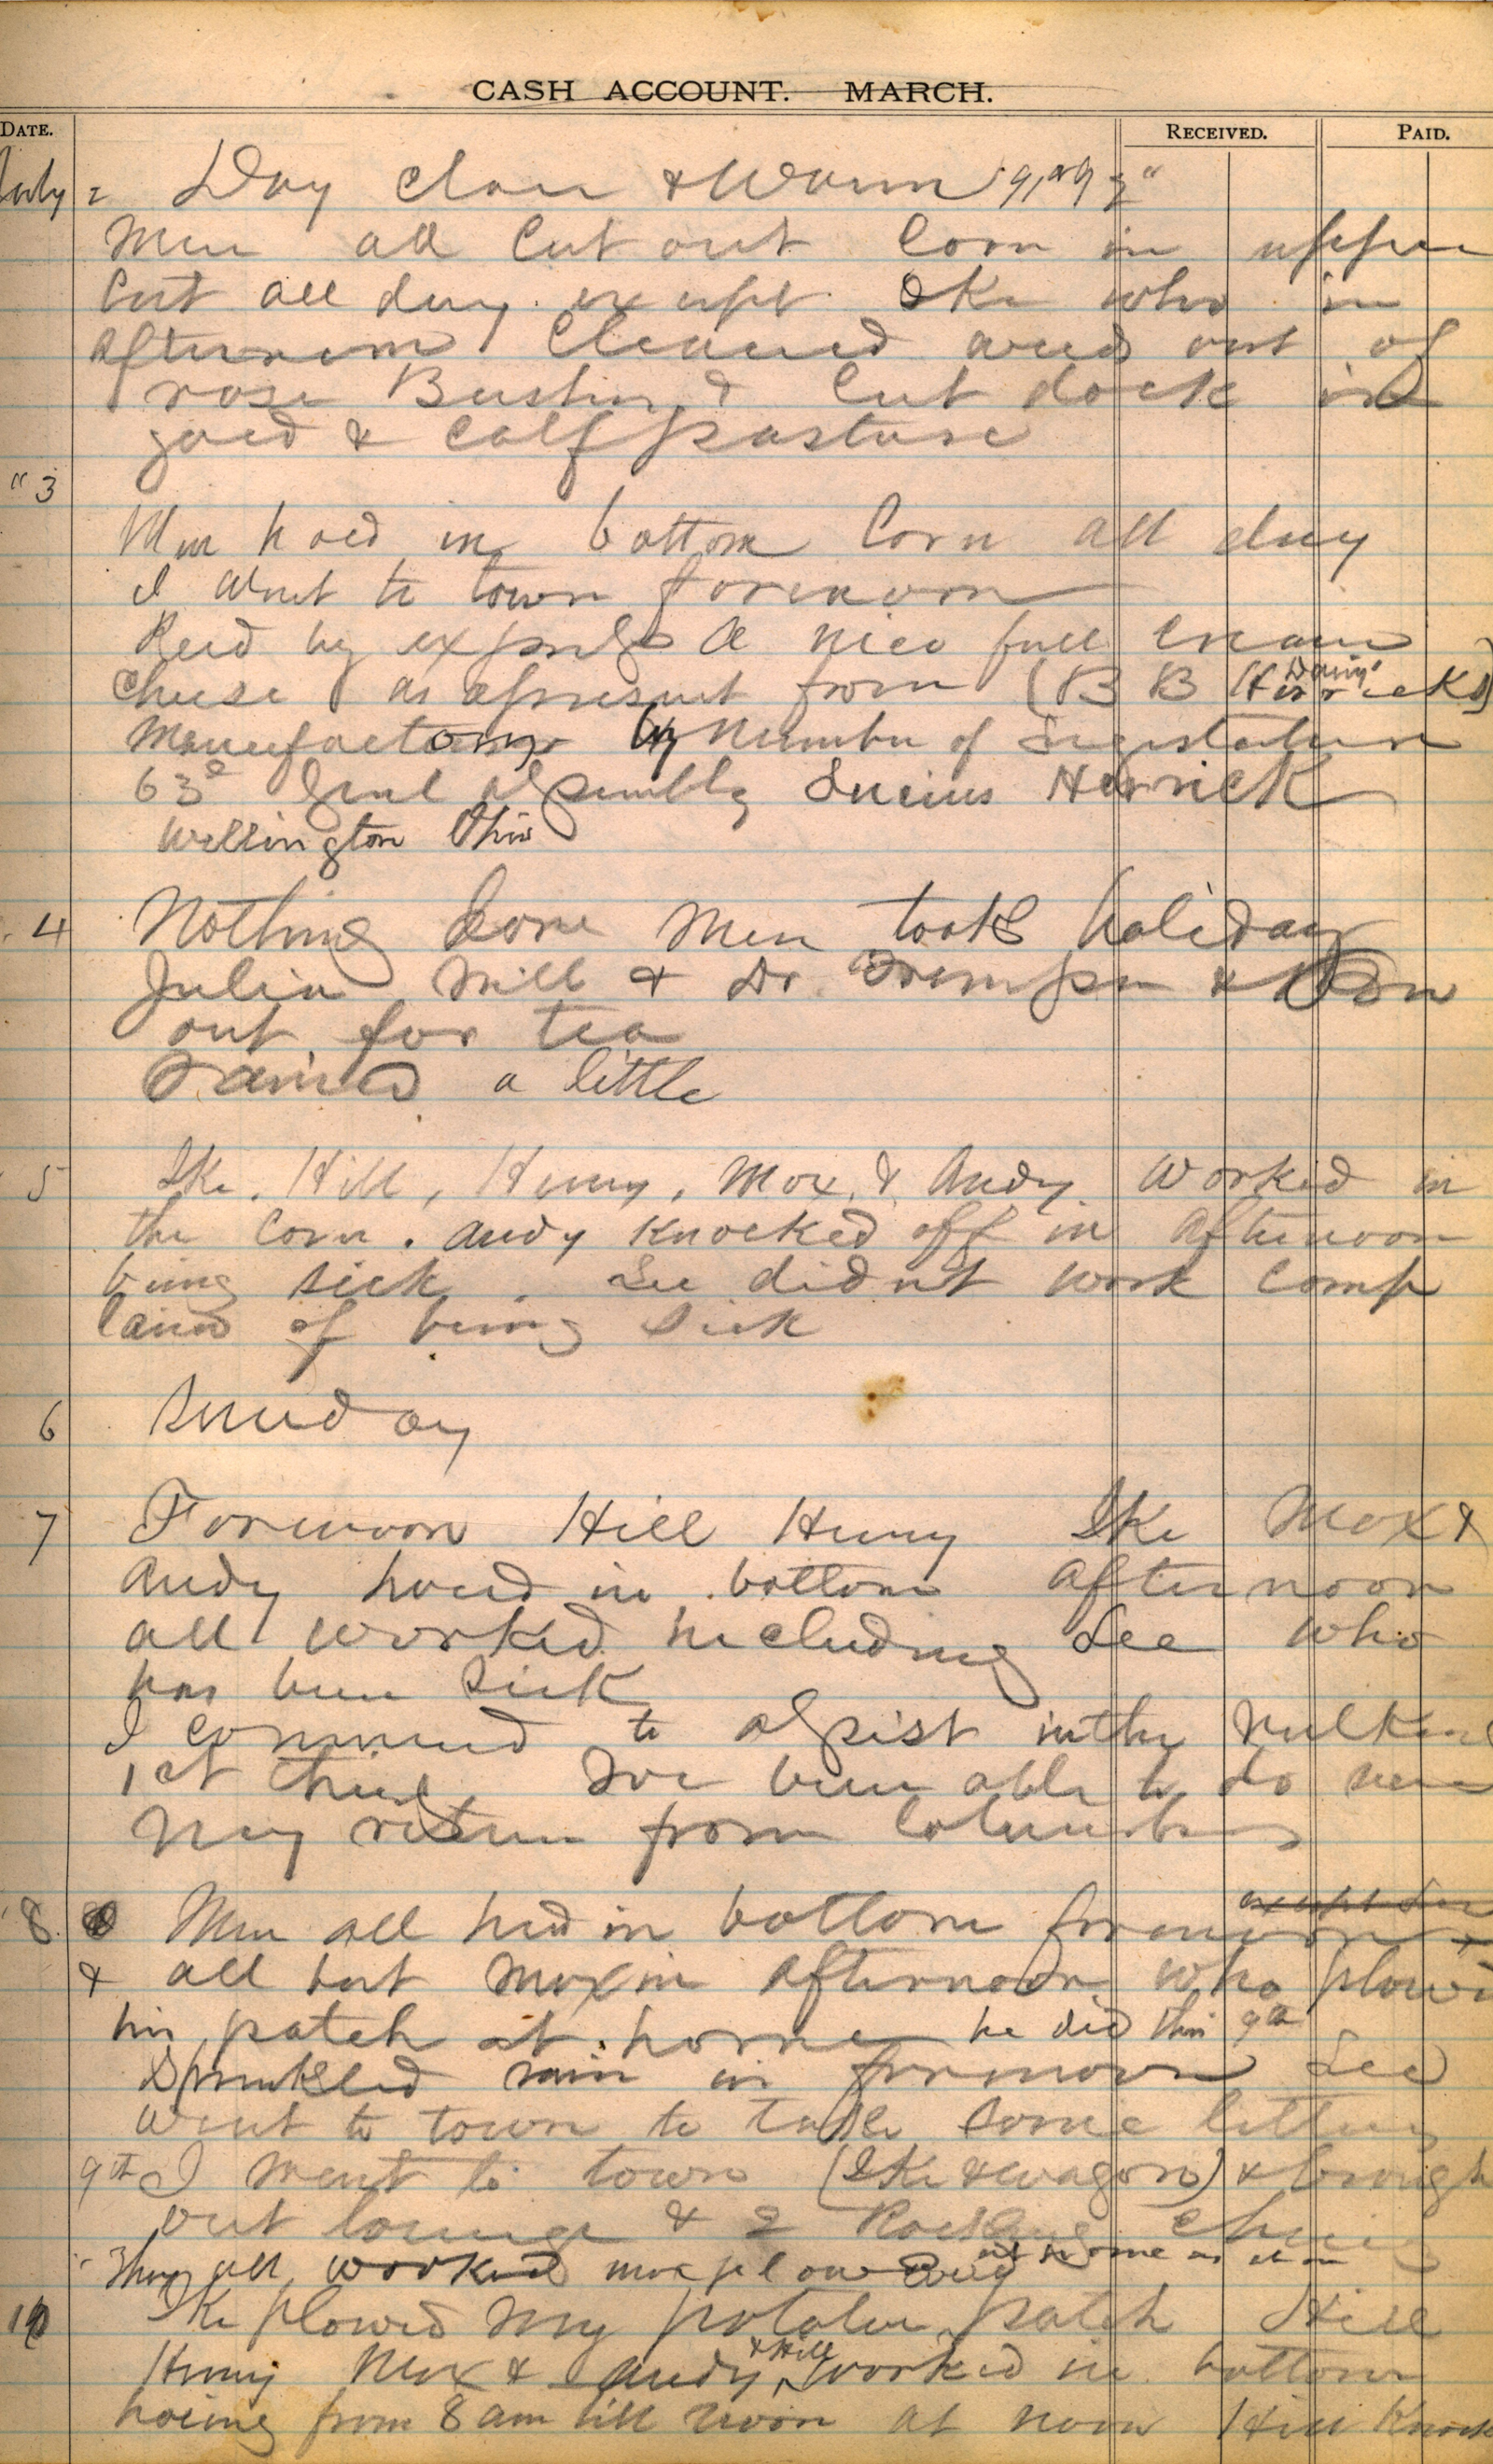 CASH ACCOUNT. MARCH.
DATE. RECEIVED. PAID.
July 2 Day clear & Warm
Men all Cut out Corn in upper
Cut all day except Ike who in
afternoon Cleaned weeds out of
rose Bushes & Cut dock in
yard & Calf pasture
" 3
Men hoed in bottom Corn all day
I went to town forenoon
Recd by express a nice full cream
Cheese as a present from (B B Herrick's) Dairy
Manufactory by Member of Legislature
63d Genl assembly Lucius Herrick
Wellington Ohio
4 Nothing done Men took holiday
Julia Mill & Dr & Don
out for tea
Rained a little
5 Ike, Hill, Henry, Mox, & Andy worked in
the Corn. Andy Knocked off in afternoon
being sick. Lee didnt work Comp
laind of being Sick
6 Sunday
7 Forenoon Hill Henry Ike Mox &
Andy hoed in bottom afternoon
all worked including Lee who
has been Sick
I commencd to assist in the milking
1st time Ive been able to do since
my return from Columbus
8 Men all hoed in bottom forenoon except Lee
& all but Mox in afternoon who plowd
his patch at home he did this 9th
Sprinkled rain in forenoon Lee
went to town to take some letters
9th I went to town (Ike & wagon) & brough
out lounge & 2 Rocking Chairs
They all worked Mox plowing at home
10 Ike plowed my potatoe patch Hill
Henry Mox & Andy & Hill worked in bottom
hoeing from 8 am till noon at noon Hill Knock